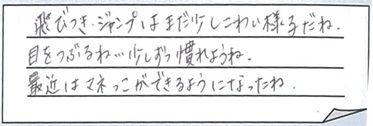 飛びつき・ジャンプはまだ少しこわい様子だね.
目をつぶるね…少しずつ慣れようね.
最近はマネっこができるようになったね.